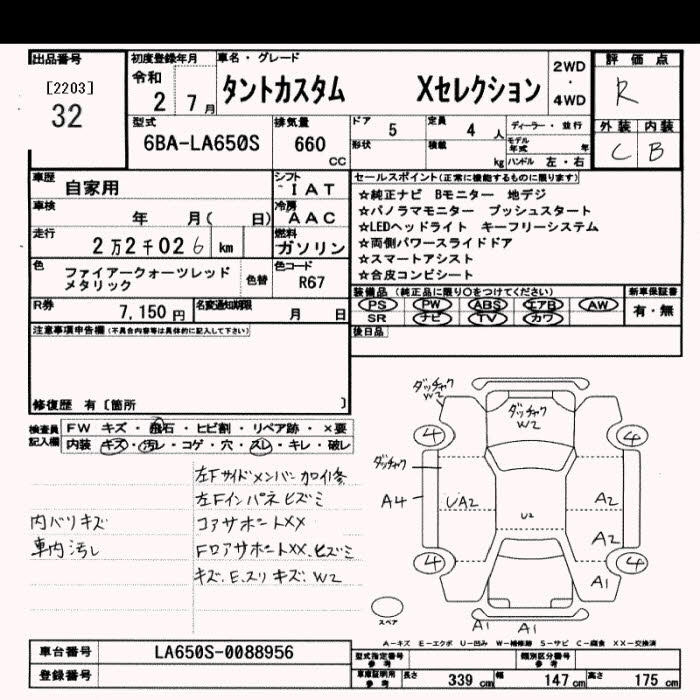 出品番号
[2203]
32
初度登録年月
令和
2 7月
車名・グレード
タントカスタム Xセレクション
2WD
・
4WD
評価点
R
型式
6BA-LA650S
排気量
660
CC
ドア 5
定員 4 人
ディーラー・並行
形状
積載 kg
モデル年式 年
ハンドル 左・右
外装 内装
C B
車歴 自家用
シフト
IAT
車検 年 月( 日)
冷房
AAC
走行 2万2千026 km
燃料
ガソリン
色 ファイアークォーツレッド
メタリック
色替
色コード
R67
R券 7,150円
名変通知期限
月 日
セールスポイント(正常に機能するものに限ります)
☆純正ナビ Bモニター 地デジ
☆パノラマモニター プッシュスタート
☆LEDヘッドライト キーフリーシステム
☆両側パワースライドドア
☆スマートアシスト
☆合皮コンビシート
装備品(純正品に限り○をつけてください)
新車保証書
PS PW ABS エアB AW
有・無
SR ナビ TV カワ
後日品
注意事項申告欄(不具合内容等は具体的に記入して下さい)
修復歴 有〔箇所 〕
検査員
記入欄
FW キズ・飛石・ヒビ割・リペア跡・×要
内装 キズ・汚レ・コゲ・穴・スレ・キレ・破レ
左Fサイドメンバーカロイ修
左Fインパネヒズミ
内バリキズ
コアサポートXX
車内汚し
FロアサポートXX.ヒズミ
キズ.E.スリキズ.W2
ダッチャク
W2
ダッチャク
W2
4
4
ダッチャク
A4
UA2
U2
A2
A2
4
4
A1
スペア
A1
A1
A-キズ E-エクボ U-凹み W-補修跡 S-サビ C-腐食 XX-交換済
車台番号 LA650S-0088956
登録番号
型式指定番号
参考
類別区分番号
参考
車庫証明用
参考
長さ 339cm
幅 147cm
高さ 175cm